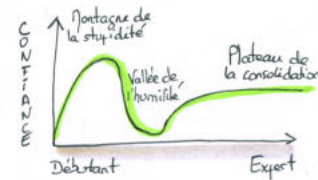 CONFIANCE
Montagne de
la stupidité
Vallée de
l'humilité
Plateau de
la consolidation
Débutant
Expert